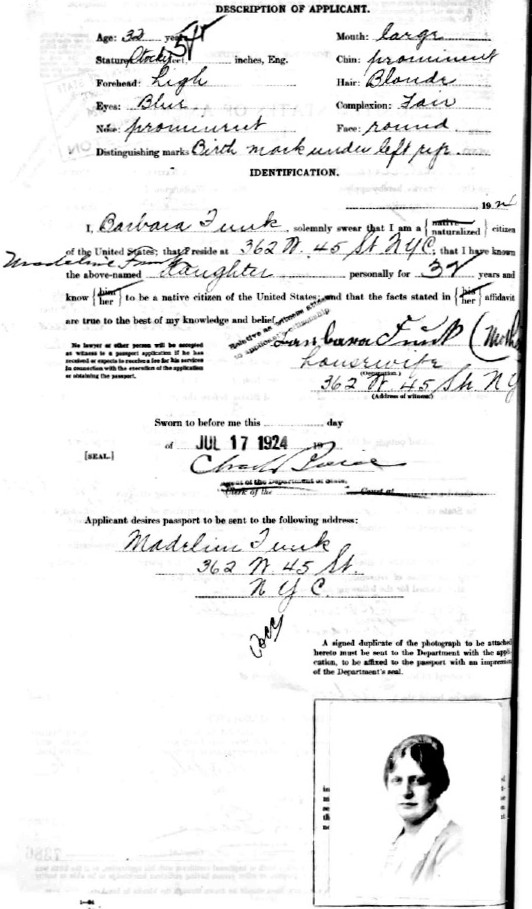 DESCRIPTION OF APPLICANT.
Age: 32 years Mouth: large
Stature: Stocky feet, 5 ft inches, Eng. Chin: prominent
Forehead: high Hair: Blonde
Eyes: Blue Complexion: Fair
Nose: prominent Face: round
Distinguishing marks Birth mark under left
IDENTIFICATION.
192
I, Barbara Funk, solemnly swear that I am a { native naturalized } citizen
of the United States; that I reside at 362 W. 45 St NYC; that I have known
Madeline Funk
the above-named daughter personally for 32 years and
know { him her } to be a native citizen of the United States; and that the facts stated in { his her } affidavit
are true to the best of my knowledge and belief.
Relative as witness attests
to applicant's citizenship
No lawyer or other person will be accepted
as witness to a passport application if he has
received or expects to receive a fee for his services
in connection with the execution of the application
or obtaining the passport.
Barbara Funk (Moth
housewife
(Occupation.)
362 W 45 St. N Y
(Address of witness)
Sworn to before me this day
of JUL 17 1924 19
[SEAL.]
Agent of the Department of State.
Clerk of the Court at
Applicant desires passport to be sent to the following address:
Madeline Funk
362 W 45 St.
N Y C.
A signed duplicate of the photograph to be attached
hereto must be sent to the Department with the appli-
cation, to be affixed to the passport with an impression
of the Department's seal.